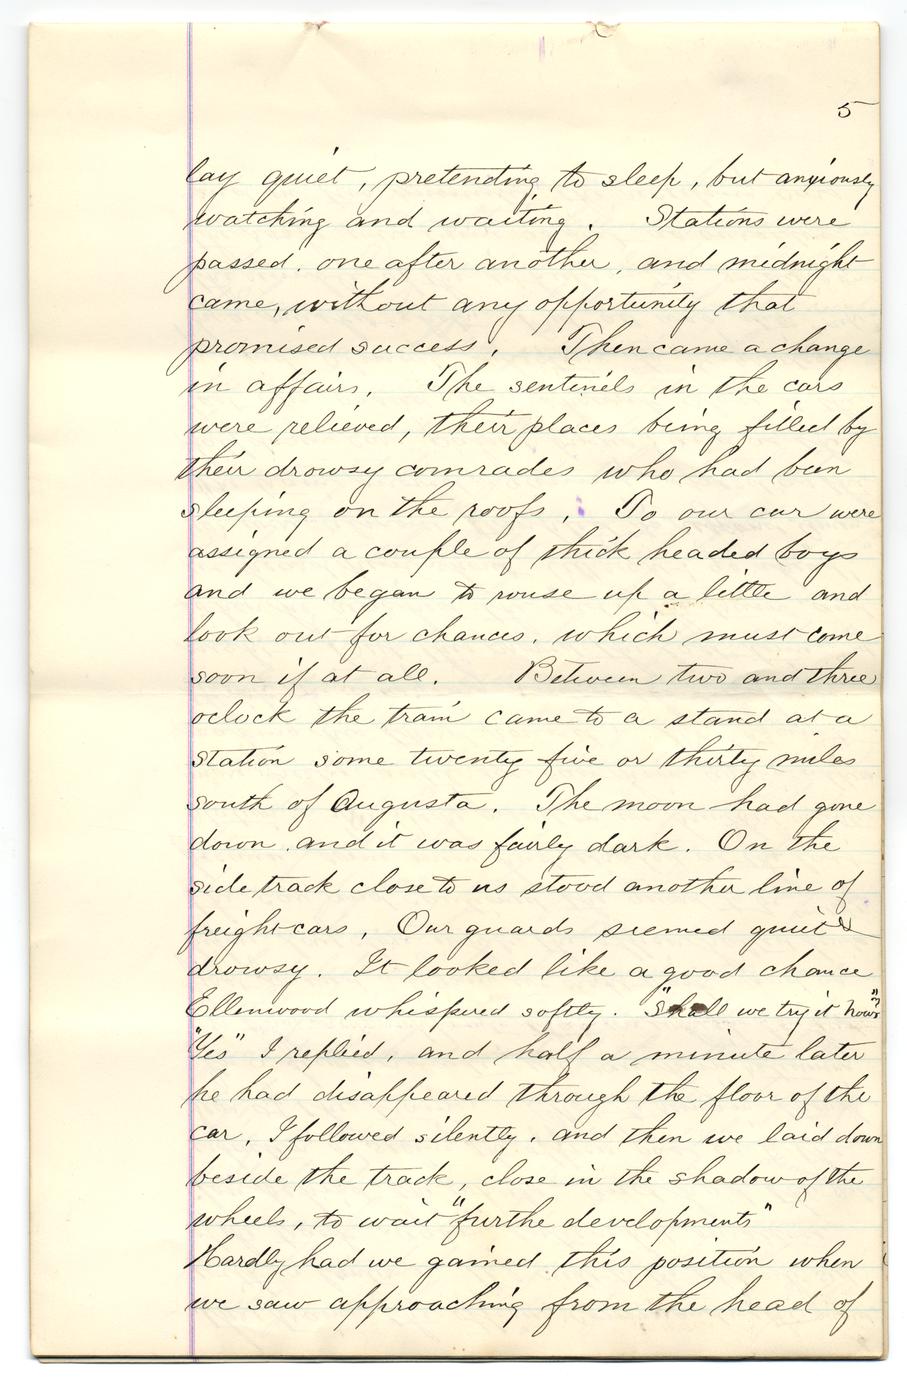 5
lay quiet, pretending to sleep, but anxiously
watching and waiting. Stations were
passed, one after another, and midnight
came, without any opportunity that
promised success. Then came a change
in affairs. The sentinels in the cars
were relieved, their places being filled by
their drowsy comrades who had been
sleeping on the roofs. To our car were
assigned a couple of thick headed boys
and we began to rouse up a little and
look out for chances, which must come
soon if at all. Between two and three
oclock the train came to a stand at a
station some twenty five or thirty miles
south of Augusta. The moon had gone
down, and it was fairly dark. On the
side track close to us stood another line of
freight cars, Our guards seemed quite
drowsy. It looked like a good chance
Ellenwood whispered softly. "Shall we try it now"?
"Yes" I replied, and half a minute later
he had disappeared through the floor of the
car, I followed silently, and then we laid down
beside the track, close in the shadow of the
wheels, to wait "furthe developments"
Hardly had we gained this position when
we saw approaching from the head of